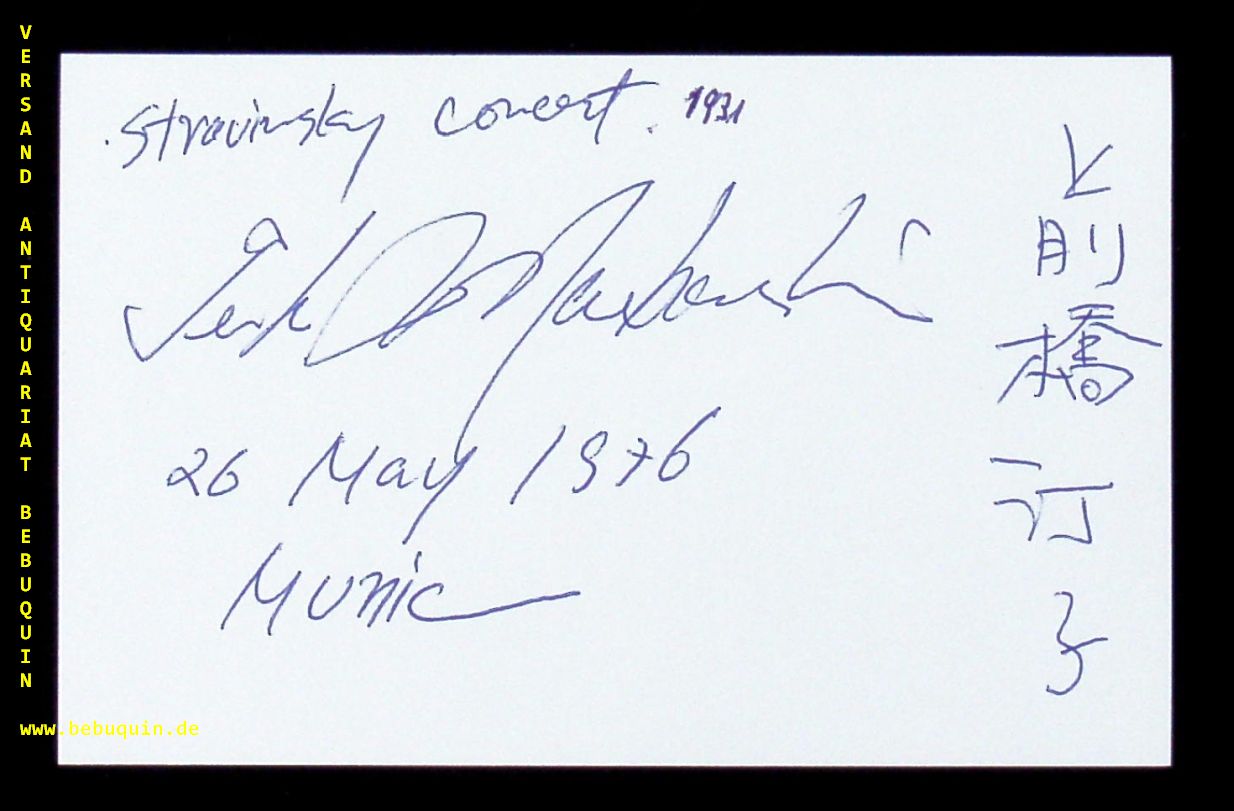 VERSAND ANTIQUARIAT BEBUQUIN
www.bebuquin.de
Stravinsky concert. 1931
26 May 1976
Munic
前橋汀子